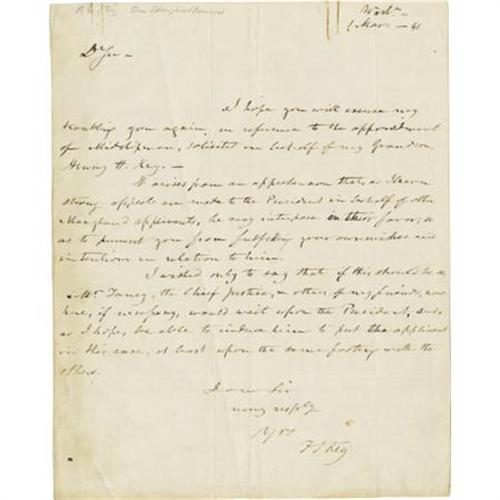 Wash.
1 Mar. — 41
Dr Sir
I hope you will excuse my
troubling you again, in reference to the appointment
of Midshipman, solicited in behalf of my Grandson,
Henry H. Key. —
It arises from an apprehension that, as I learn
strong appeals are made to the President in behalf of other
Maryland applicants, he may interpose in their favor, so
as to prevent you from fulfilling your own wishes and
intentions in relation to him.
I wished only to say that if this should be so,
Mr. Taney, the Chief Justice, & others of my friends, now
here, if necessary, would wait upon the President, and,
as I hope, be able to induce him to put the applicant
in this case, at least upon the same footing with the
others.
I am Sir
very resply
Yrs
F S Key